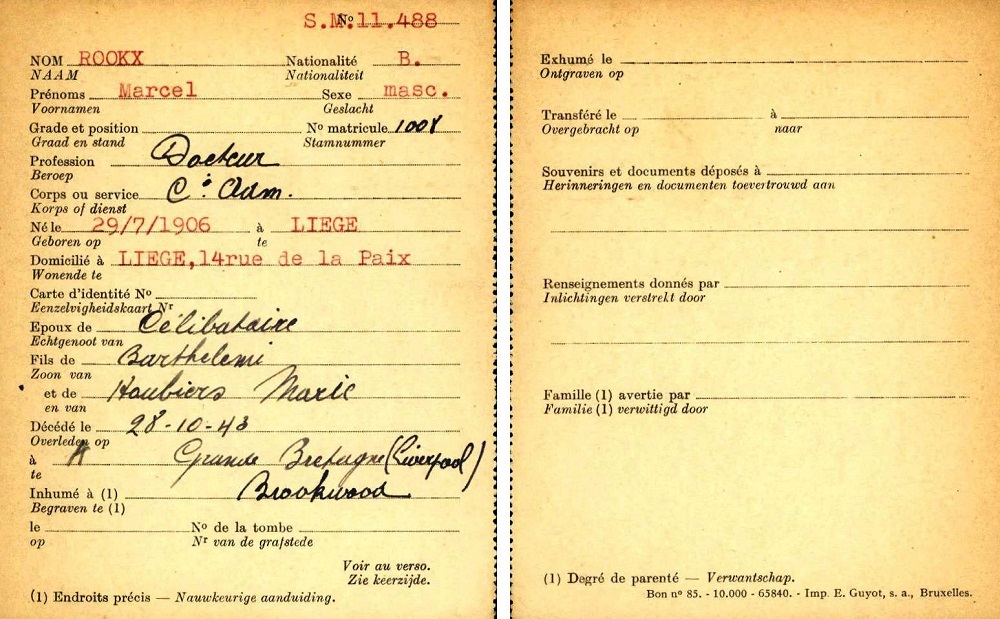 S.M.11.488
Nº
NOM ROOKX Nationalité B.
NAAM Nationaliteit
Prénoms Marcel Sexe masc.
Voornamen Geslacht
Grade et position Nº matricule 1008
Graad en stand Stamnummer
Profession Docteur
Beroep
Corps ou service Cº Adm.
Korps of dienst
Né le 29/7/1906 à LIEGE
Geboren op te
Domicilié à LIEGE,14rue de la Paix
Wonende te
Carte d'identité Nº
Eenzelvigheidskaart Nr
Epoux de Célibataire
Echtgenoot van
Fils de Barthelemi
Zoon van
et de Houbiers Marie
en van
Décédé le 28-10-43
Overleden op
à Grande Bretagne (Liverpool)
te
Inhumé à (1) Brookwood
Begraven te (1)
le Nº de la tombe
op Nr van de grafstede
Voir au verso.
Zie keerzijde.
(1) Endroits précis — Nauwkeurige aanduiding.
Exhumé le
Ontgraven op
Transféré le à
Overgebracht op naar
Souvenirs et documents déposés à
Herinneringen en documenten toevertrouwd aan
Renseignements donnés par
Inlichtingen verstrekt door
Famille (1) avertie par
Familie (1) verwittigd door
(1) Degré de parenté — Verwantschap.
Bon nº 85. - 10.000 - 65840. - Imp. E. Guyot, s. a., Bruxelles.